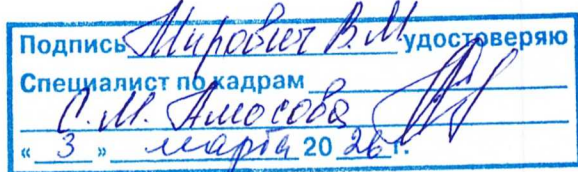 Подпись Мирович В.М удостоверяю
Специалист по кадрам
С.М. Амосова
« 3 » марта 20 26 г.